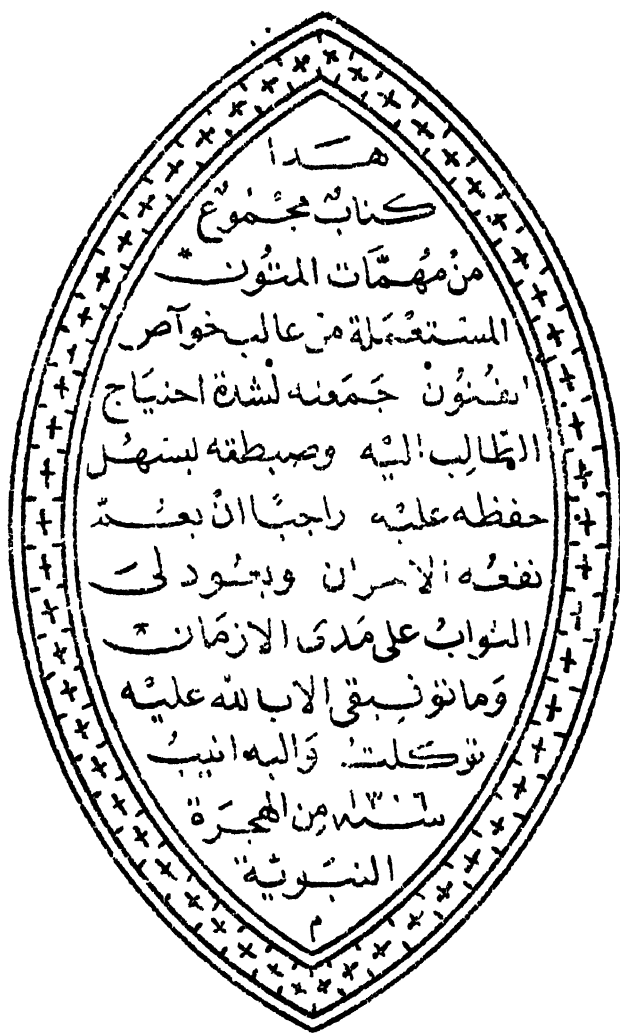 هذا
كتابٌ مجْموعٌ
منْ مهُمَّات المتُون *
المستعْمَلة من غالب خوآص
الفُنُونْ جَمَعته لشدة احتيَاج
الطّالِب اليْه وضبطته ليسْهُل
حفظه عليْه راجيًا انْ يعُمَّ
نفعُه الاخوان ويعُود لىَ
الثوابُ على مَدَى الازمَان *
وَما توفيقى الا بالله عليْه
توكلتُ وَاليه انيبُ
سنة ١٣٠٦ مِن الهجرَة
النبَويّة
م